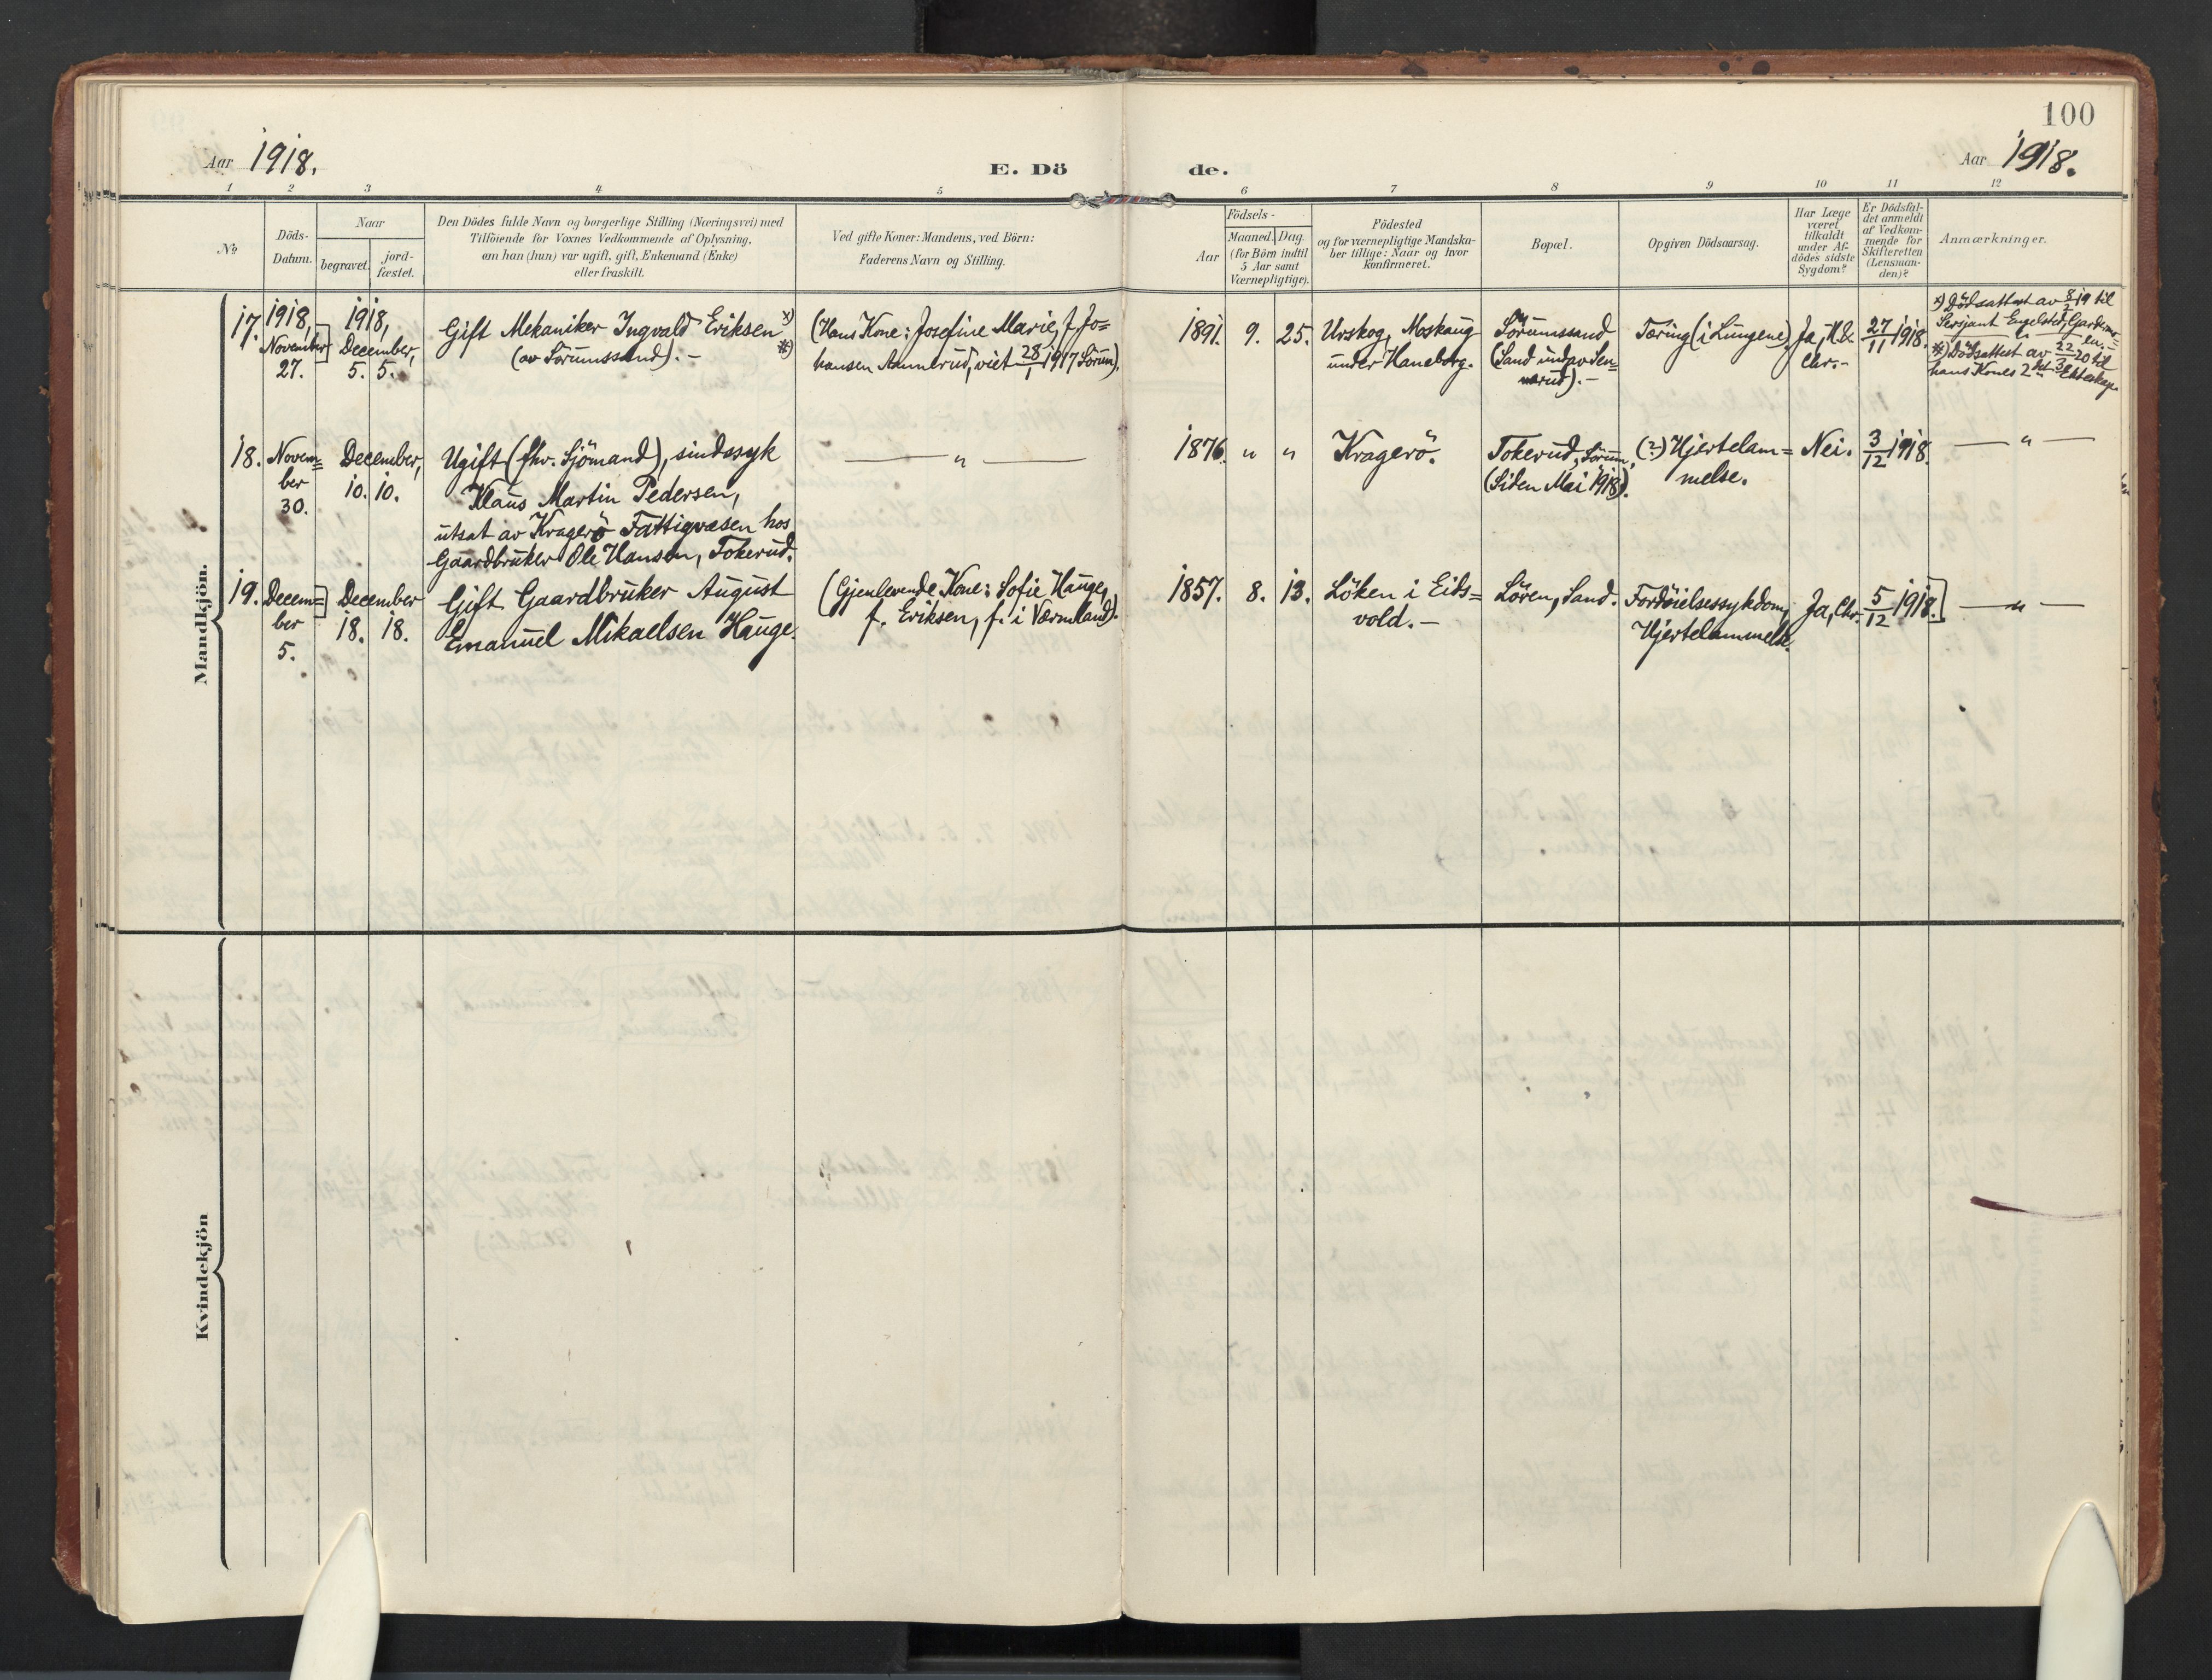 100
Aar 1918.
E. Dö de.
Aar 1918.
1 2 3 4 5 6 7 8 9 10 11 12
No
Döds-
Datum.
Naar
begravet.
jord-
fæstet.
Den Dödes fulde Navn og borgerlige Stilling (Næringsvei) med
Tilföiende for Voxnes Vedkommende af Oplysning,
om han (hun) var ugift, gift, Enkemand (Enke)
eller fraskilt.
Ved gifte Koner: Mandens, ved Börn:
Faderens Navn og Stilling.
Födsels-
Aar
Maaned. Dag.
(for Börn indtil
5 Aar samt
Værnepligtige).
Födested
og for værnepligtige Mandska-
ber tillige: Naar og hvor
konfirmeret.
Bopæl.
Opgiven Dödsaarsag.
Har Læge
været
tilkaldt
under Af-
dödes sidste
Sygdom?
Er Dödsfal-
det anmeldt
af Vedkom-
mende for
Skifteretten
(Lensman-
den)?
Anmærkninger.
Mandkjön.
17.
1918,
November
27.
1918,
December,
5. 5.
Gift Mekaniker Ingvald Eriksen x)
(av Sörumssand). - *)
(Hans Kone: Josefine Marie, f. Jo=
hansen Annerud, viet 28/1 1917 Sörum).
1891. 9. 25.
Urskog, Moskaug
under Haneborg.
Sörumssand
(Sand
Tæring (i Lungene)
Ja,
Chr.-
27/11 1918.
x) Dödsattest av 8/3 19 til
Sersjant Engelsted, Gardermo=
en.-
*) Dödsattest av 22/3 20 til
hans Kones 2det Ekteskap.
18.
Novem=
ber
30.
December,
10. 10.
Ugift (fhv. Sjömand), sindssyk
Klaus Martin Pedersen,
utsat av Kragerö Fattigvæsen hos
Gaardbruker Ole Hansen, Tokerud.
— " —
1876. " "
Kragerö.
Tokerud, Sörum,
(Siden Mai 1918).
(?) Hjertelam=
melse.
Nei.
3/12 1918.
— " —
19.
Decem=
ber
5.
December
18. 18.
Gift Gaardbruker August
Emanuel Mikaelsen Hauge.
(Gjenlevende Kone: Sofie Hauge,
f. Eriksen, f. i Värmland).
1857. 8. 13.
Löken i Eids=
vold.-
Lören, Sand.
Fordöielsessykdom,
Hjertelammelse.
Ja, Chr.
5/12 1918.
— " —
Kvindekjön